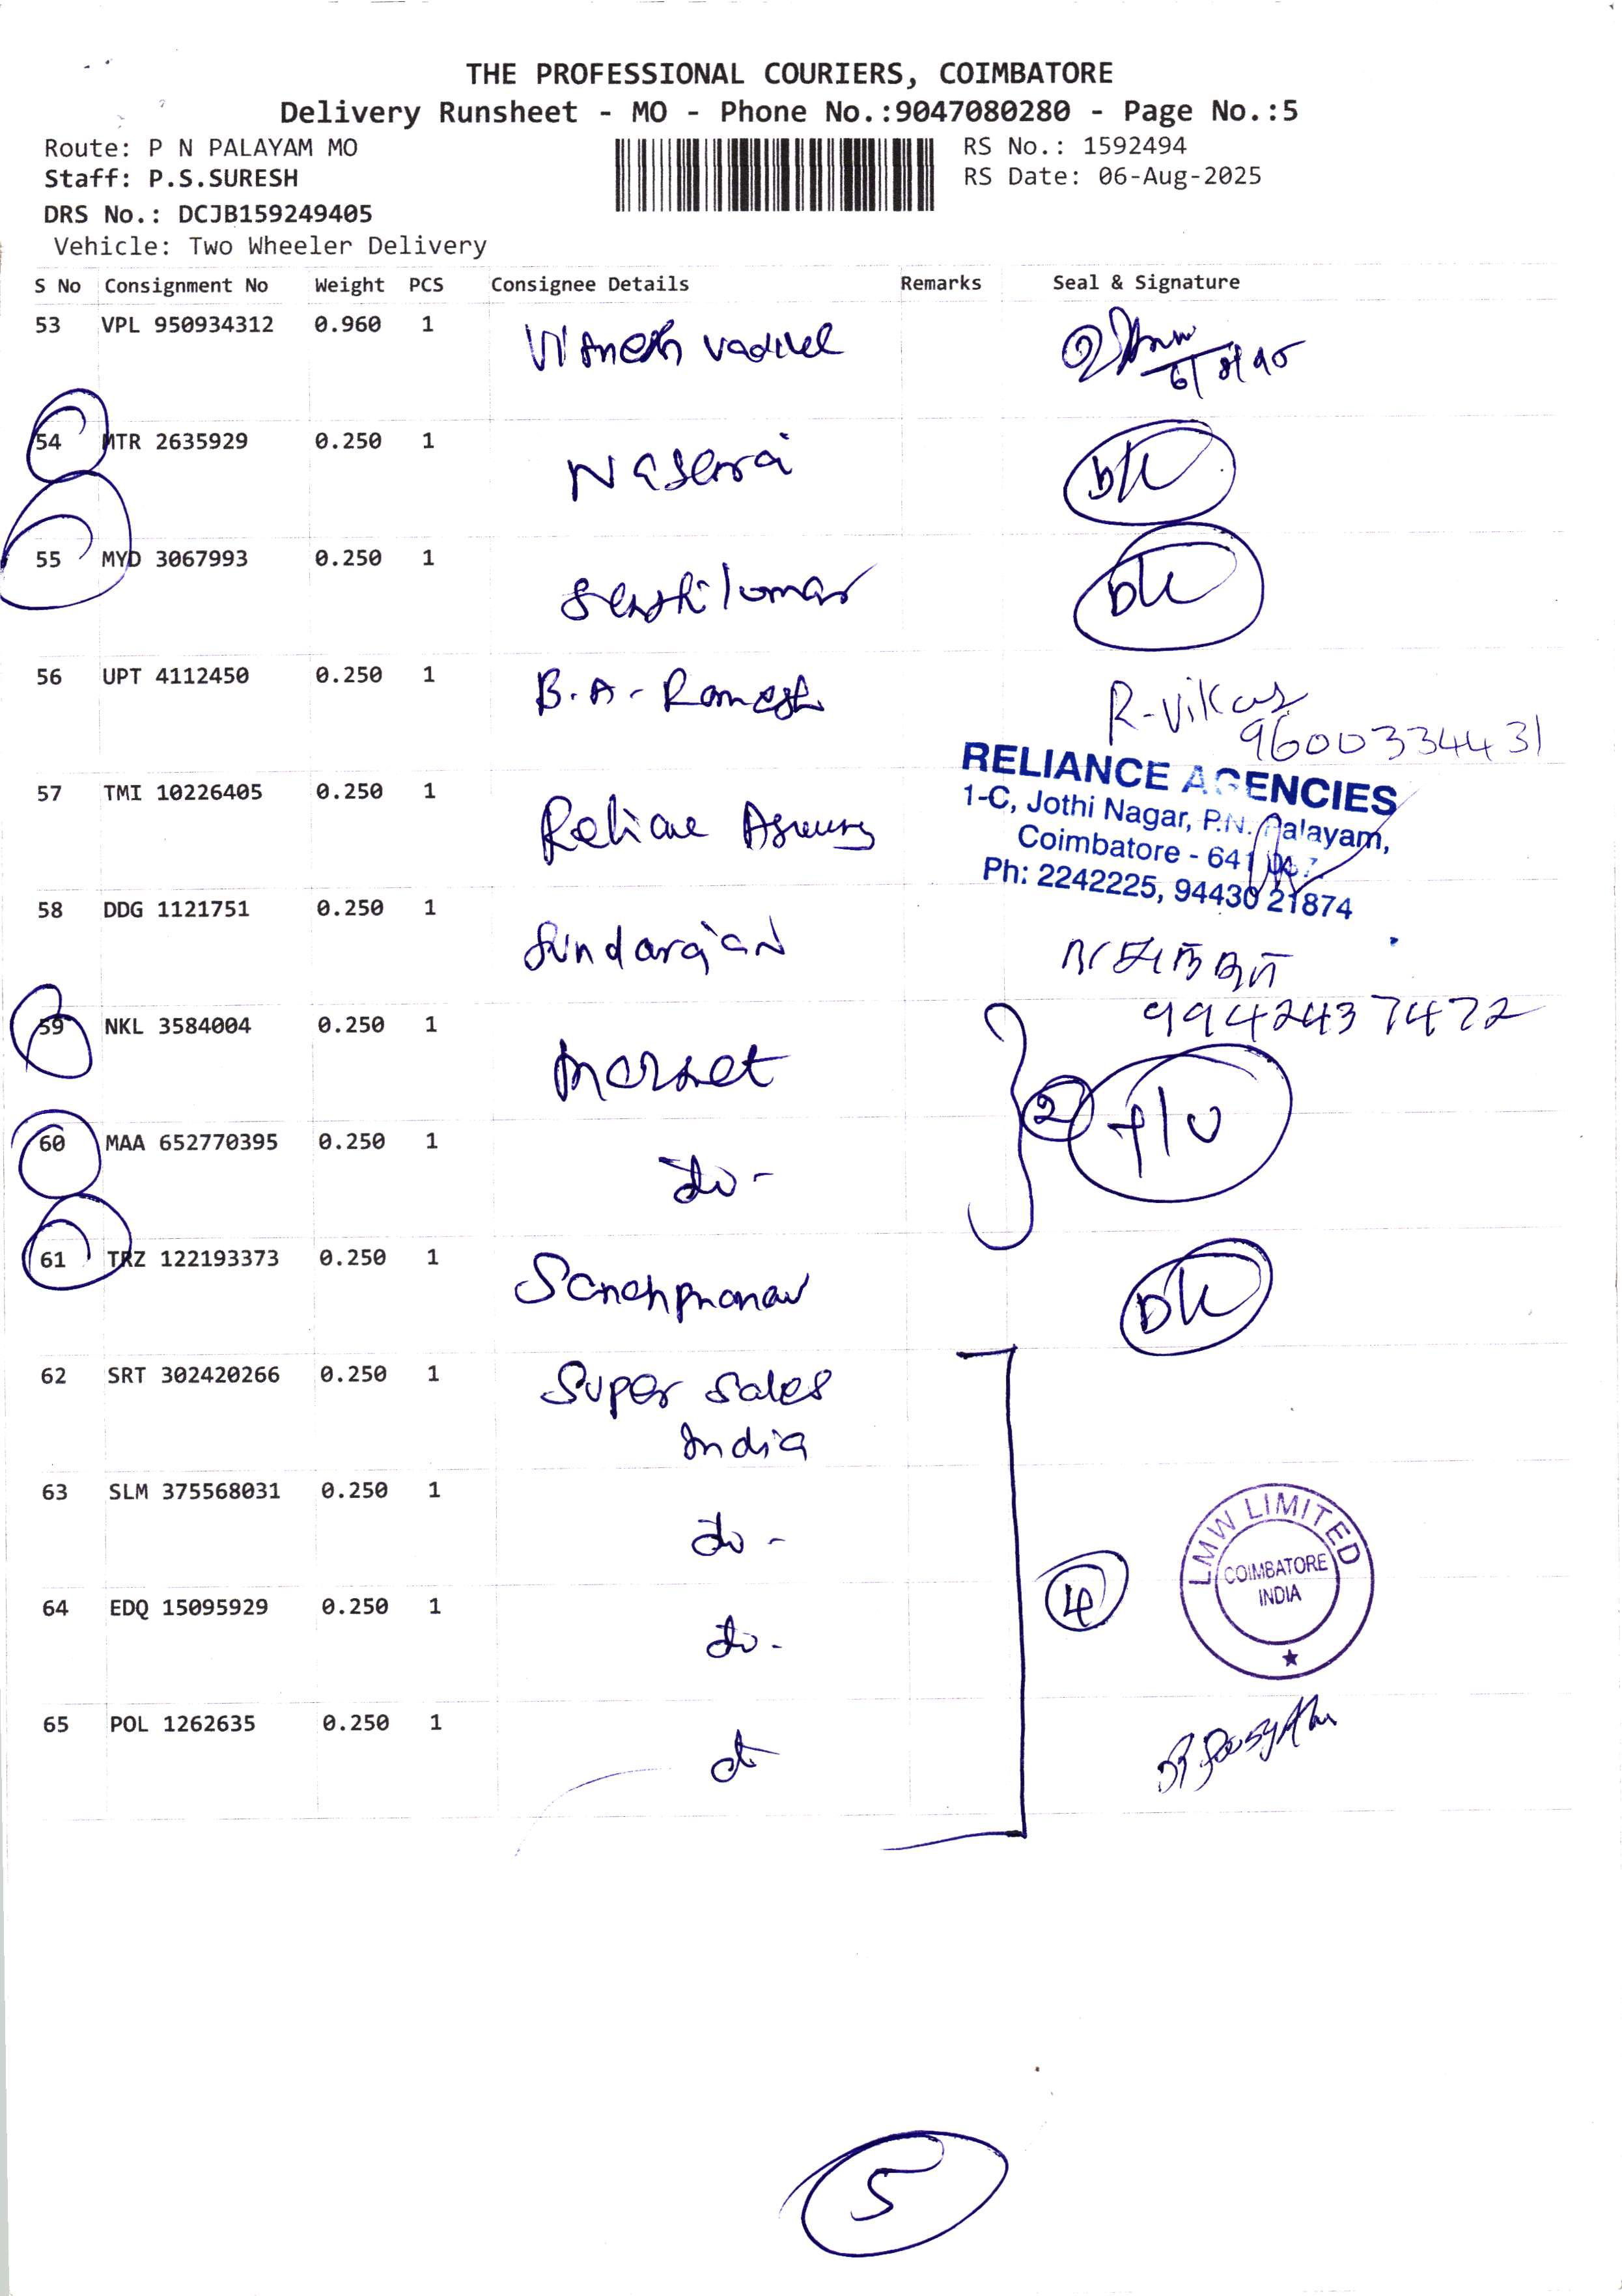 THE PROFESSIONAL COURIERS, COIMBATORE
Delivery Runsheet - MO - Phone No.:9047080280 - Page No.:5
Route: P N PALAYAM MO
RS No.: 1592494
Staff: P.S.SURESH
RS Date: 06-Aug-2025
DRS No.: DCJB159249405
Vehicle: Two Wheeler Delivery
S No Consignment No Weight PCS Consignee Details Remarks Seal & Signature
53 VPL 950934312 0.960 1
54 MTR 2635929 0.250 1
55 MYD 3067993 0.250 1
56 UPT 4112450 0.250 1 B.A. Ramesh R-Vikas
9600334431
57 TMI 10226405 0.250 1 Reliance
RELIANCE AGENCIES
1-C, Jothi Nagar, P.N. Palayam,
Coimbatore - 641
Ph: 2242225, 94430 21874
58 DDG 1121751 0.250 1 Sundarajan
9942437472
59 NKL 3584004 0.250 1
2
60 MAA 652770395 0.250 1 do -
61 TRZ 122193373 0.250 1 DL
62 SRT 302420266 0.250 1 Super Sales
India
63 SLM 375568031 0.250 1 do -
LMW LIMITED
COIMBATORE
INDIA
64 EDQ 15095929 0.250 1 do - 4
65 POL 1262635 0.250 1
5